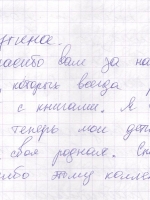 асибо вам за на
которые всегда
с книгами. Я
теперь мои дет
своя родная. Сп
ибо этому колле